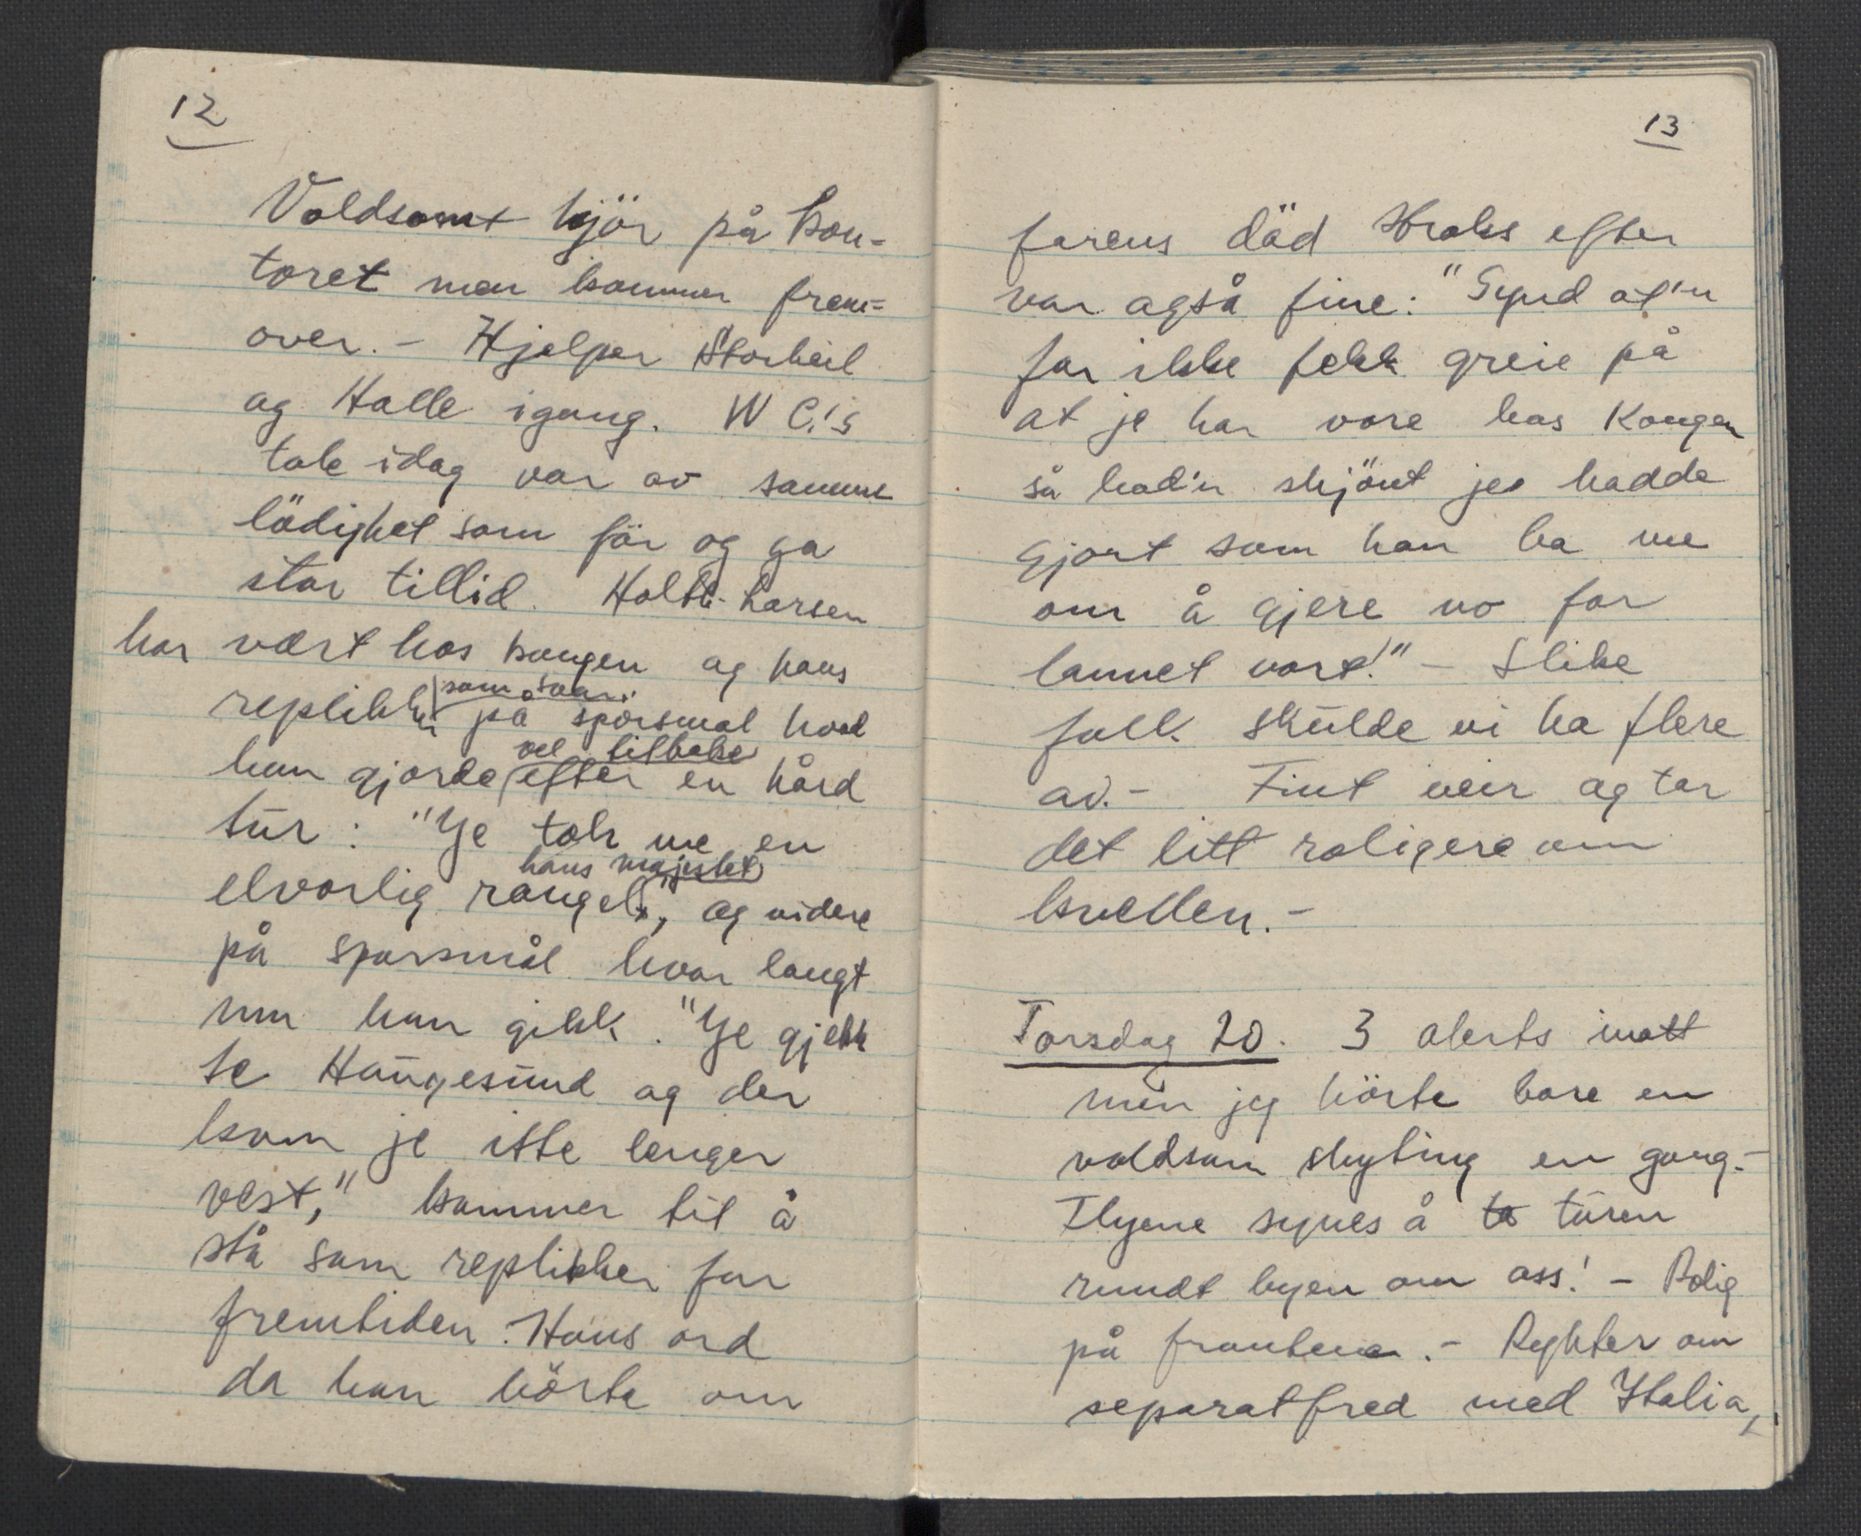 12
Voldsomt kjör på kon-
toret men kommer frem-
over. - Hjelper Storheil
og Halle igang. W C.'s
tale idag var av samme
lödighet som för og ga
stor tillid. Holth-Larsen
har vært hos kongen og hans
replikk som svar
på spörsmal hvad
han gjorde vel tilbake
efter en hård
tur: "Ye tok me en
elvorlig rangel, hans majestet", og videre
på sporsmål hvor langt
han gikk. "Ye gjekk
te Haugesund og der
kom je itte lenger
vest," kommer til å
stå som replikker for
fremtiden. Hans ord
da han hörte om
13
farens död straks efter
var også fine: "Synd at'n
far ikke fekk greie på
at je har vore hos Kongen
så had'n skjönt jeg hadde
gjort som han ba me
om å gjere no for
lannet vort!" - Slike
folk skulde vi ha flere
av. - Fint veir og tar
det litt roligere om
kvellen. -
Torsdag 20. 3 alerts inatt
men jeg hörte bare en
voldsom skyting en gang. -
Flyene synes å ta turen
rundt byen om oss! - Rolig
på frontene. - Rykter om
separatfred med Italia,